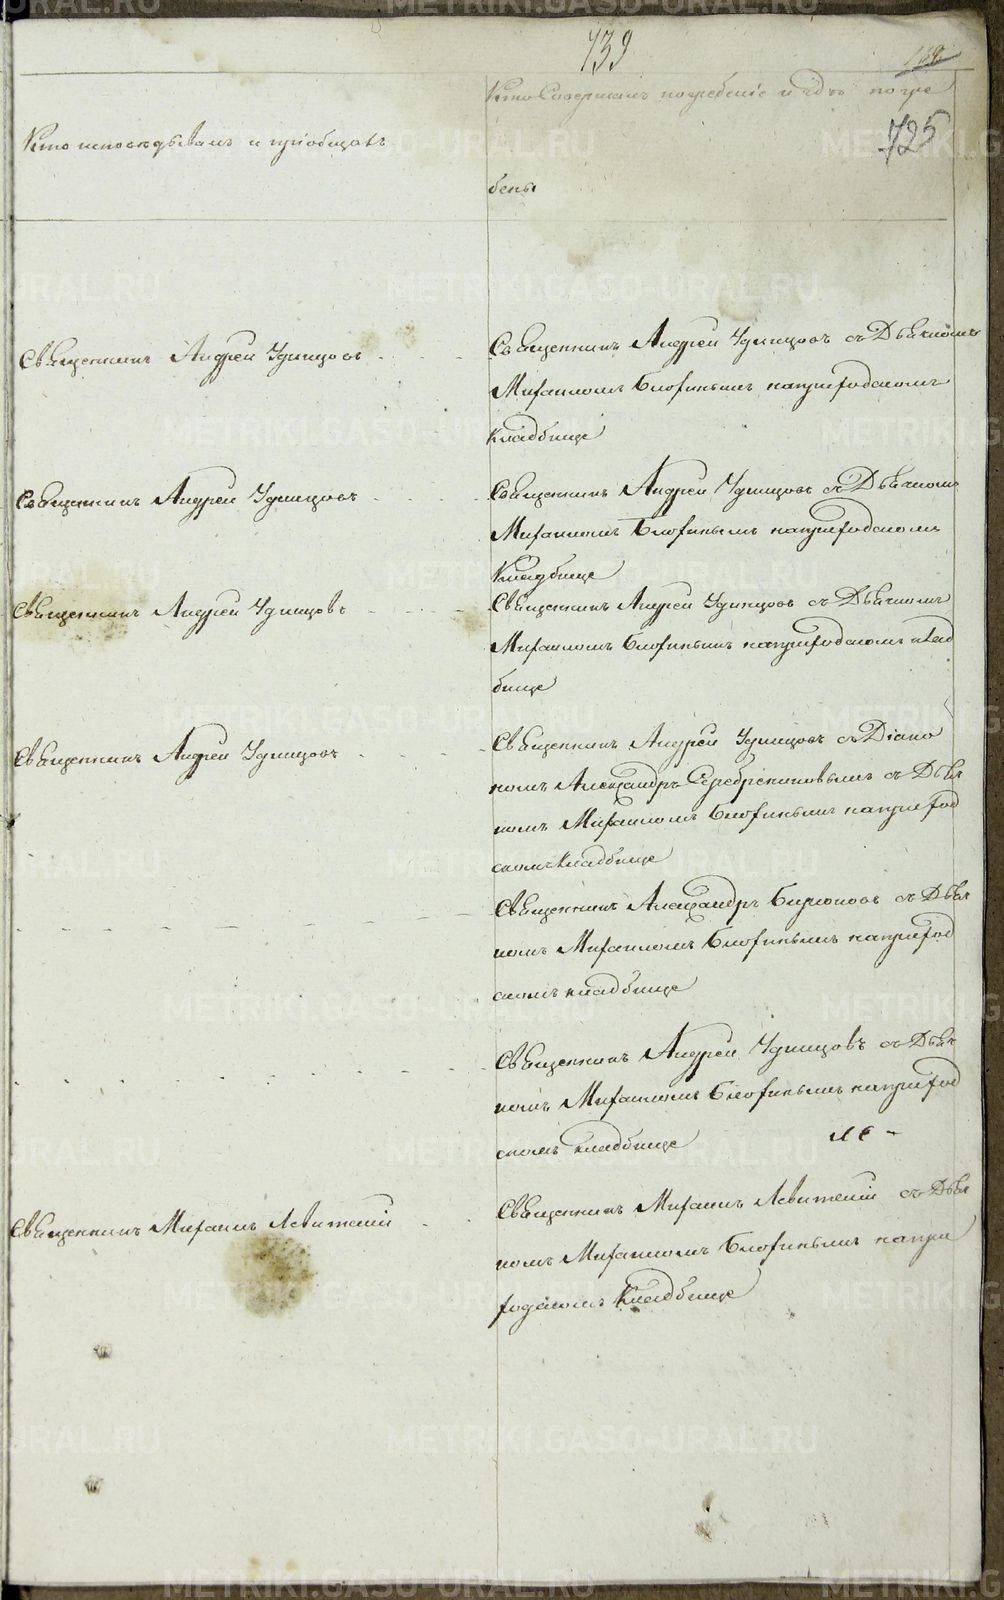 739
725
Кто исповѣдывалъ и пріобщалъ
Кто Совершалъ погребеніе и гдѣ погре
бены
Священникъ Андрей Удинцовъ
Священникъ Андрей Удинцовъ съ Дьячкомъ
Михаиломъ Блохинымъ на приходскомъ
Кладбище
Священникъ Андрей Удинцовъ
Священникъ Андрей Удинцовъ съ Дьячкомъ
Михаиломъ Блохинымъ на приходскомъ
Кладбище
Священникъ Андрей Удинцовъ
Священникъ Андрей Удинцовъ съ Дьячкомъ
Михаиломъ Блохинымъ на приходскомъ клад
бище
Священникъ Андрей Удинцовъ
Священникъ Андрей Удинцовъ съ Діако
номъ Александръ Серебрениковымъ съ Дьяч
комъ Михаиломъ Блохинымъ на приход
скомъ Кладбище
Священникъ Александръ Бирюковъ съ Дьяч
комъ Михаиломъ Блохинымъ на приход
скомъ кладбище
Священникъ Андрей Удинцовъ съ Дьяч
комъ Михаиломъ Блохинымъ на приход
скомъ кладбище
Священникъ Михаилъ Левитскій
Священникъ Михаилъ Левитскій съ Дьяч
комъ Михаиломъ Блохинымъ на при
ходскомъ Кладбище
METRIKI.GASO-URAL.RU